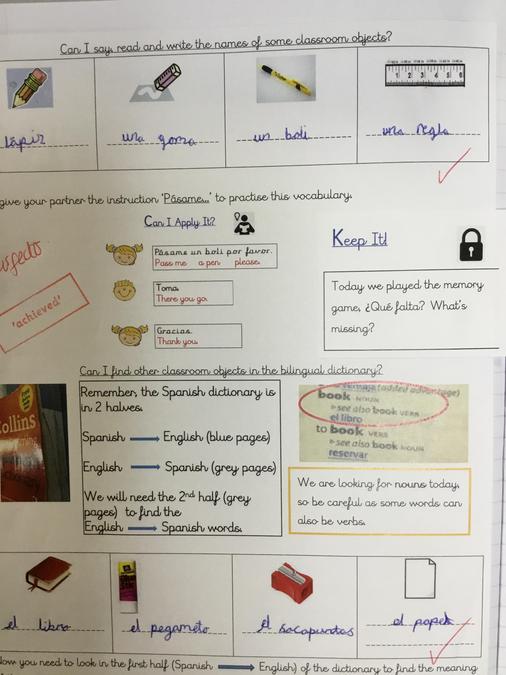 Can I say, read and write the names of some classroom objects?
lápiz
una goma
un boli
una regla
1 2 3 4 5 6
give your partner the instruction 'Pásame...' to practise this vocabulary.
Can I Apply It?
Pásame un boli por favor.
Pass me a pen please.
Toma.
There you go.
Gracias.
Thank you.
'achieved'
Keep It!
Today we played the memory
game, ¿Qué falta? What's
missing?
Can I find other classroom objects in the bilingual dictionary?
Collins
Remember, the Spanish dictionary is
in 2 halves.
Spanish English (blue pages)
English Spanish (grey pages)
We will need the 2nd half (grey
pages) to find the
English Spanish words.
(added advantage)
book NOUN
see also book VERB
el libro
to book VERB
see also book NOUN
reservar
We are looking for nouns today,
so be careful as some words can
also be verbs.
el libro
el pegameto
el sacapuntas
el papel
Now you need to look in the first half (Spanish English) of the dictionary to find the meaning